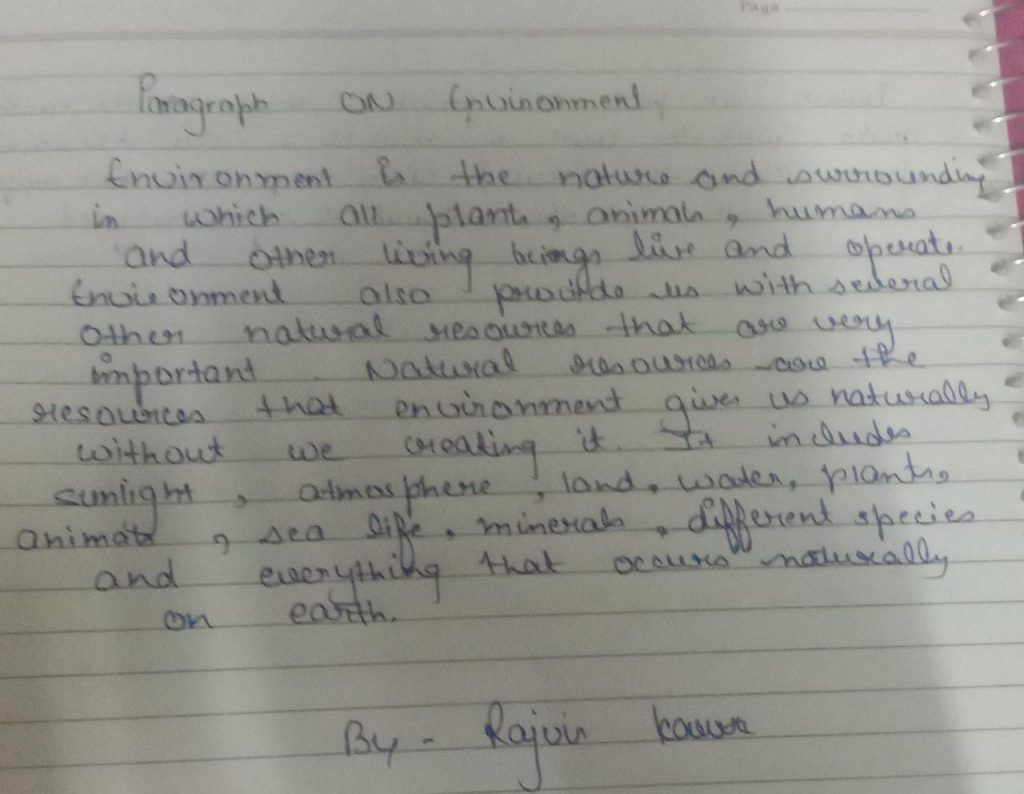 Page
Paragraph ON Environment
Environment is the nature and surrounding
in which all plants, animals, humans
and other living beings live and operate.
Environment also provide us with several
other natural resources that are very
important. Natural resources are the
resources that environment gives us naturally
without we creating it. It includes
sunlight, atmosphere, land, water, plants,
animals, sea life, minerals, different species
and everything that occurs naturally
on earth.
By - Rajvir kaur